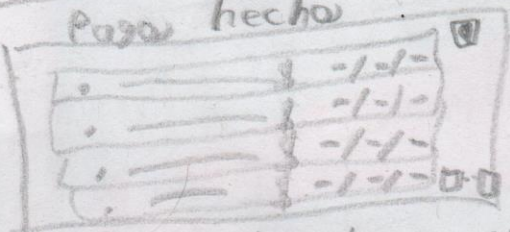 Pagos hecho
$ -/-/-
$ -/-/-
$ -/-/-
$ -/-/-